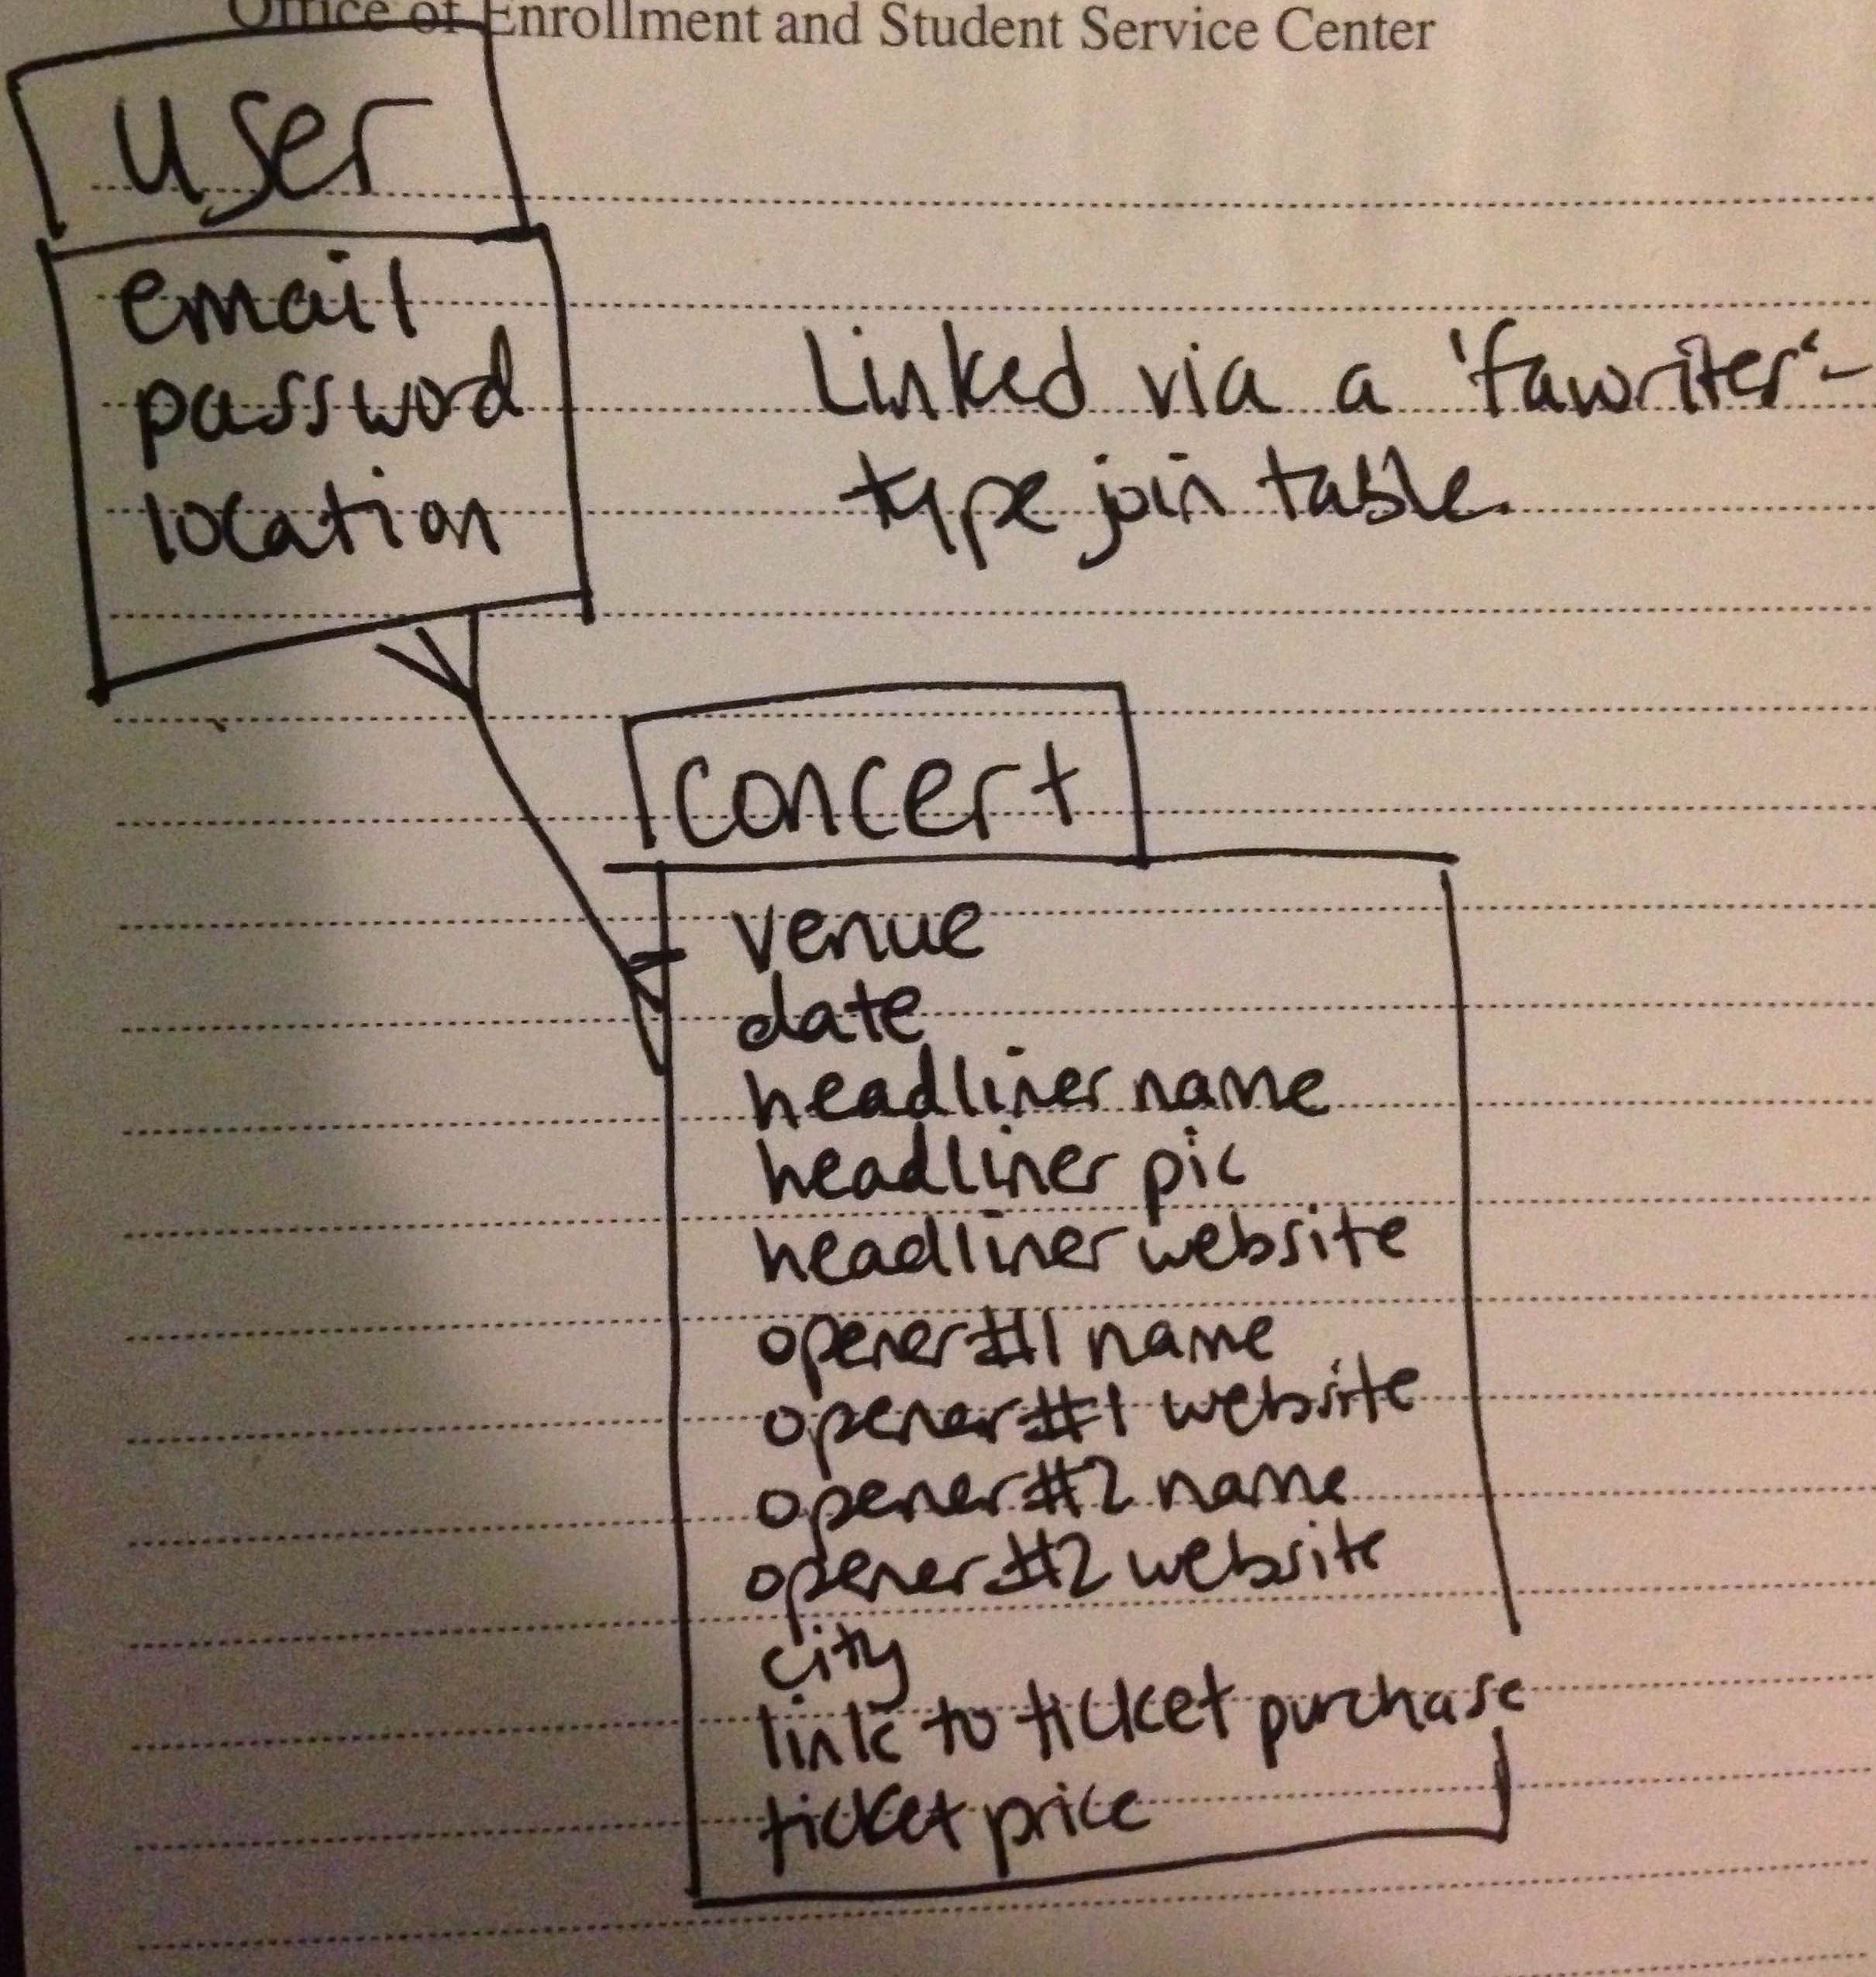 Office of Enrollment and Student Service Center
user
email
password
location
Linked via a 'favorites'-
type join table.
concert
venue
date
headliner name
headliner pic
headliner website
opener #1 name
opener #1 website
opener #2 name
opener #2 website
city
link to ticket purchase
ticket price